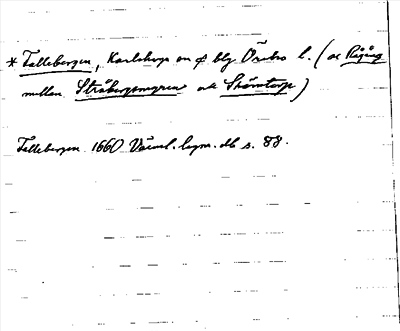 * Fallebergen, Karlskoga sn ⌀ blg Örebro l. (ok Rågång
mellan Stråbergsmyren ok Skärntorp)
Fallebergen 1660 Värml. lagm. db s. 88.